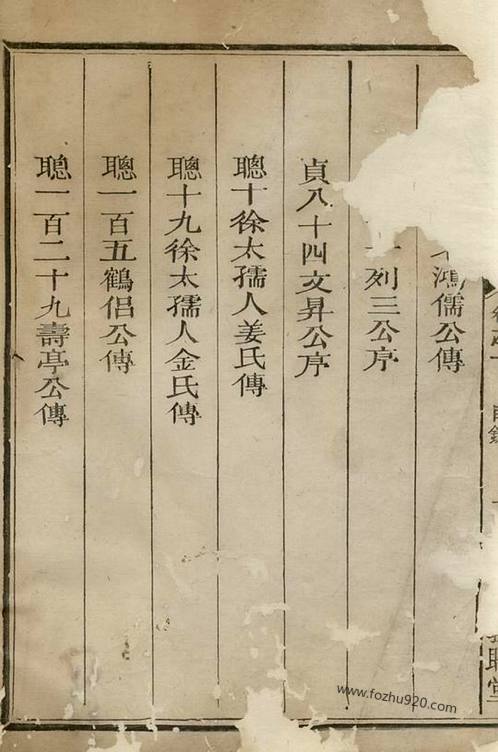 鴻儒公傳
列三公序
貞八十四文昇公序
聰十徐太孺人姜氏傳
聰十九徐太孺人金氏傳
聰一百五鶴侣公傳
聰一百二十九壽亭公傳
www.fozhu920.com